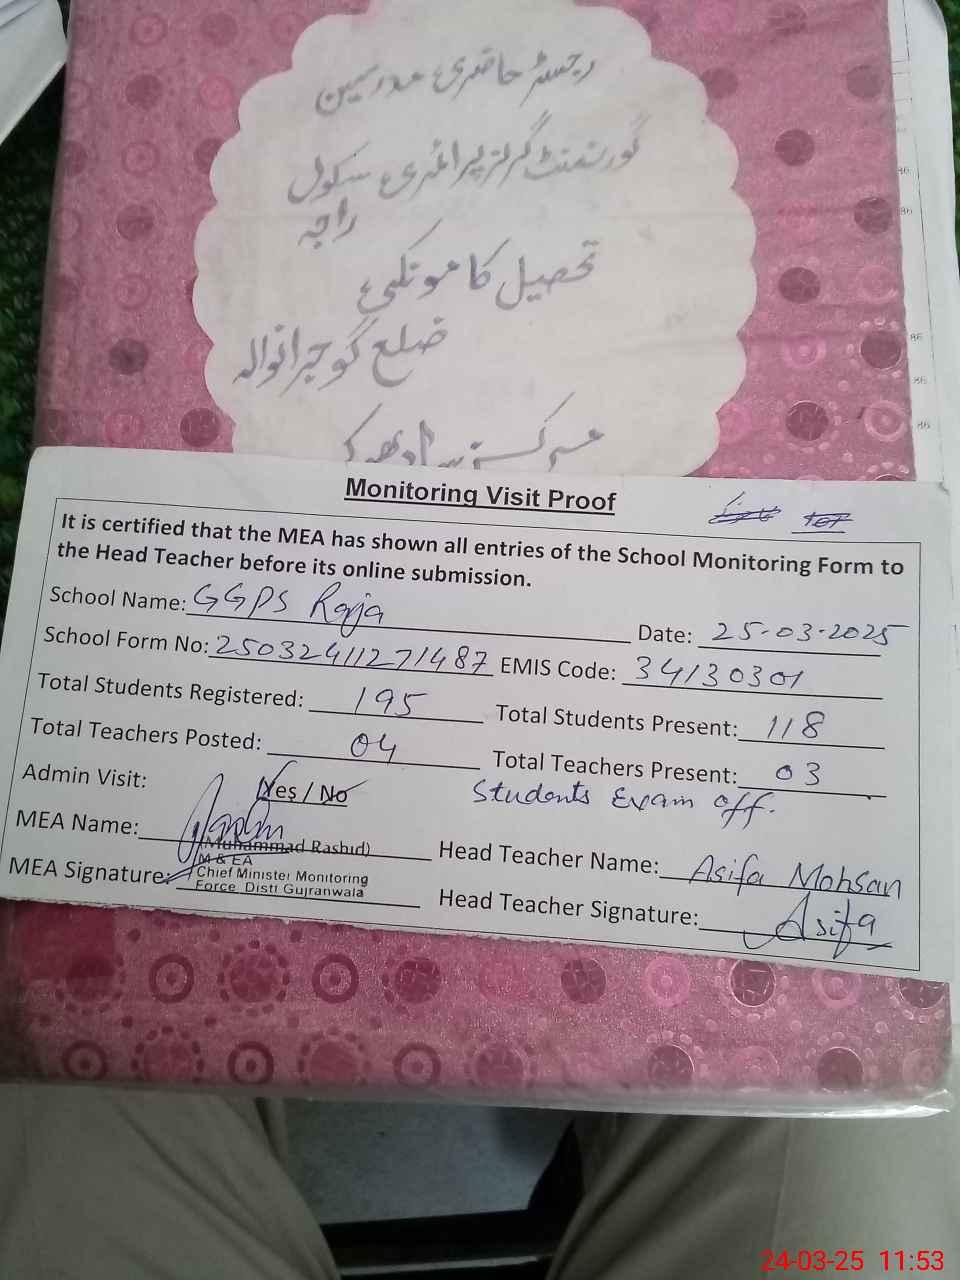 رجسٹر حاضری مدرسین
گورنمنٹ گرلز پرائمری سکول
راجہ
تحصیل کامونکی
ضلع گوجرانوالہ
مرکز سادھوکے
Monitoring Visit Proof
It is certified that the MEA has shown all entries of the School Monitoring Form to
the Head Teacher before its online submission.
School Name: GGPS Raja Date: 25-03-2025
School Form No: 25032411271487 EMIS Code: 34130301
Total Students Registered: 195 Total Students Present: 118
Total Teachers Posted: 04 Total Teachers Present: 03
Admin Visit: Yes / No Students Exam off.
MEA Name: Head Teacher Name: Asifa Mohsan
(Muhammad Rashid)
M & EA
Chief Minister Monitoring
Force Distt Gujranwala
MEA Signature: Head Teacher Signature: Asifa
86
86
86
86
86
24-03-25 11:53